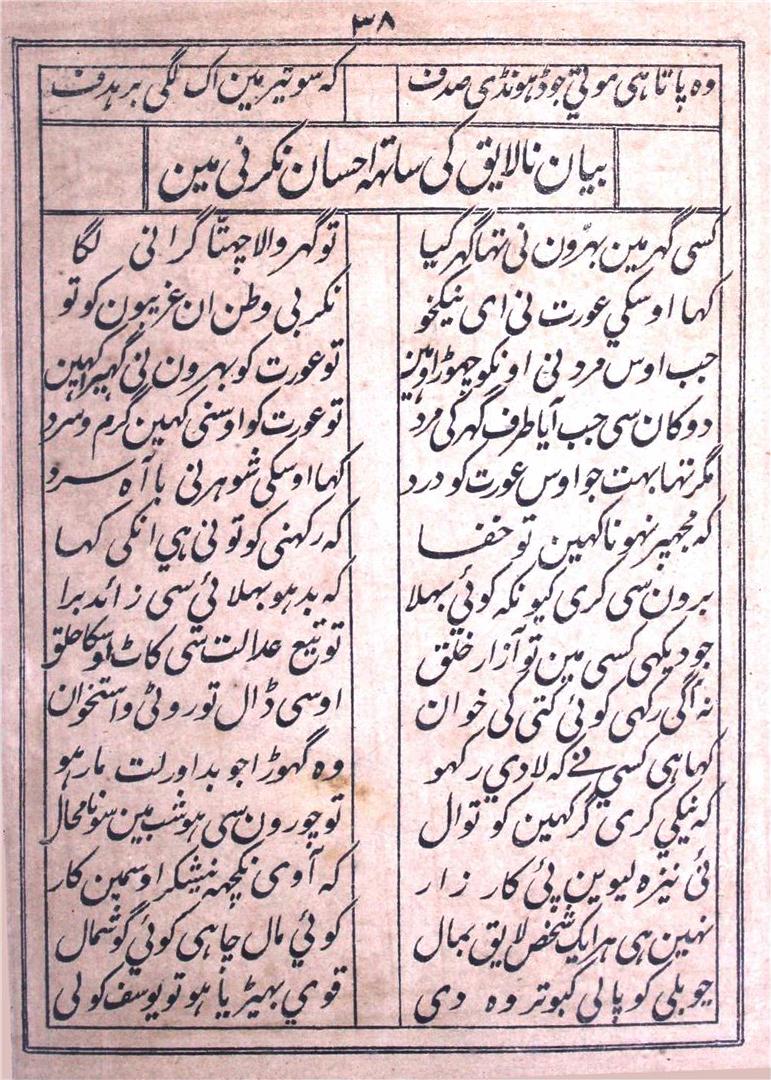 ۳۸
وہ پاتا ہی موتي جو ڈہونڈی صدف کہ سو تیر مین اک لگی بر ہدف
بیان نالایق کی ساتہہ احسان نکرنی مین
کسی گہر مین بہڑون نی تہا گہر کیا تو گہر والا چہتّا گرانی لگا
کہا اوسکي عورت نی ای نیکخو نکر بی وطن ان غریبون کو تو
جب اوس مرد نی اونکو چہوڑا وہین تو عورت کو بہرون نی گہیرا کہین
دوکان سی جب آیا طرف گہر کی مرد تو عورت کو اوسنی کہین گرم و سرد
مگر تہا بہت جو اوس عورت کو درد کہا اوسکی شوہر نی با آہ سرد
کہ مجہپر نہونا کہین تو خفا کہ رکہنی کو تو نی ہي انکی کہا
بدون سی کری کیونکہ کوئي بہلا کہ بد ہو بہلائي سی زائد برا
جو دیکہی کسی مین تو آزار خلق تو تیغ عدالت سی کاٹ اوسکا حلق
نہ آگی رکہی کوئي کتی کی خوان اوسی ڈال تو روٹی و استخوان
کہا ہی کسي نے کہ لادي رکہو وہ گہوڑا جو بد اور لت مار ہو
کہ نیکي کری گر کہین کوتوال تو چورون سی ہو شب مین سونا محال
نئی نیزہ لیوین پئ کار زار کہ آوی نکچہہ نیشکر اوسمین کار
نہین ہی ہر ایک شخص لایق بمال کوئي مال چاہی کوئي گوشمال
جو بلی کو پالی کبوتر وہ دی قوي بہیڑیا ہو تو یوسف کو لی